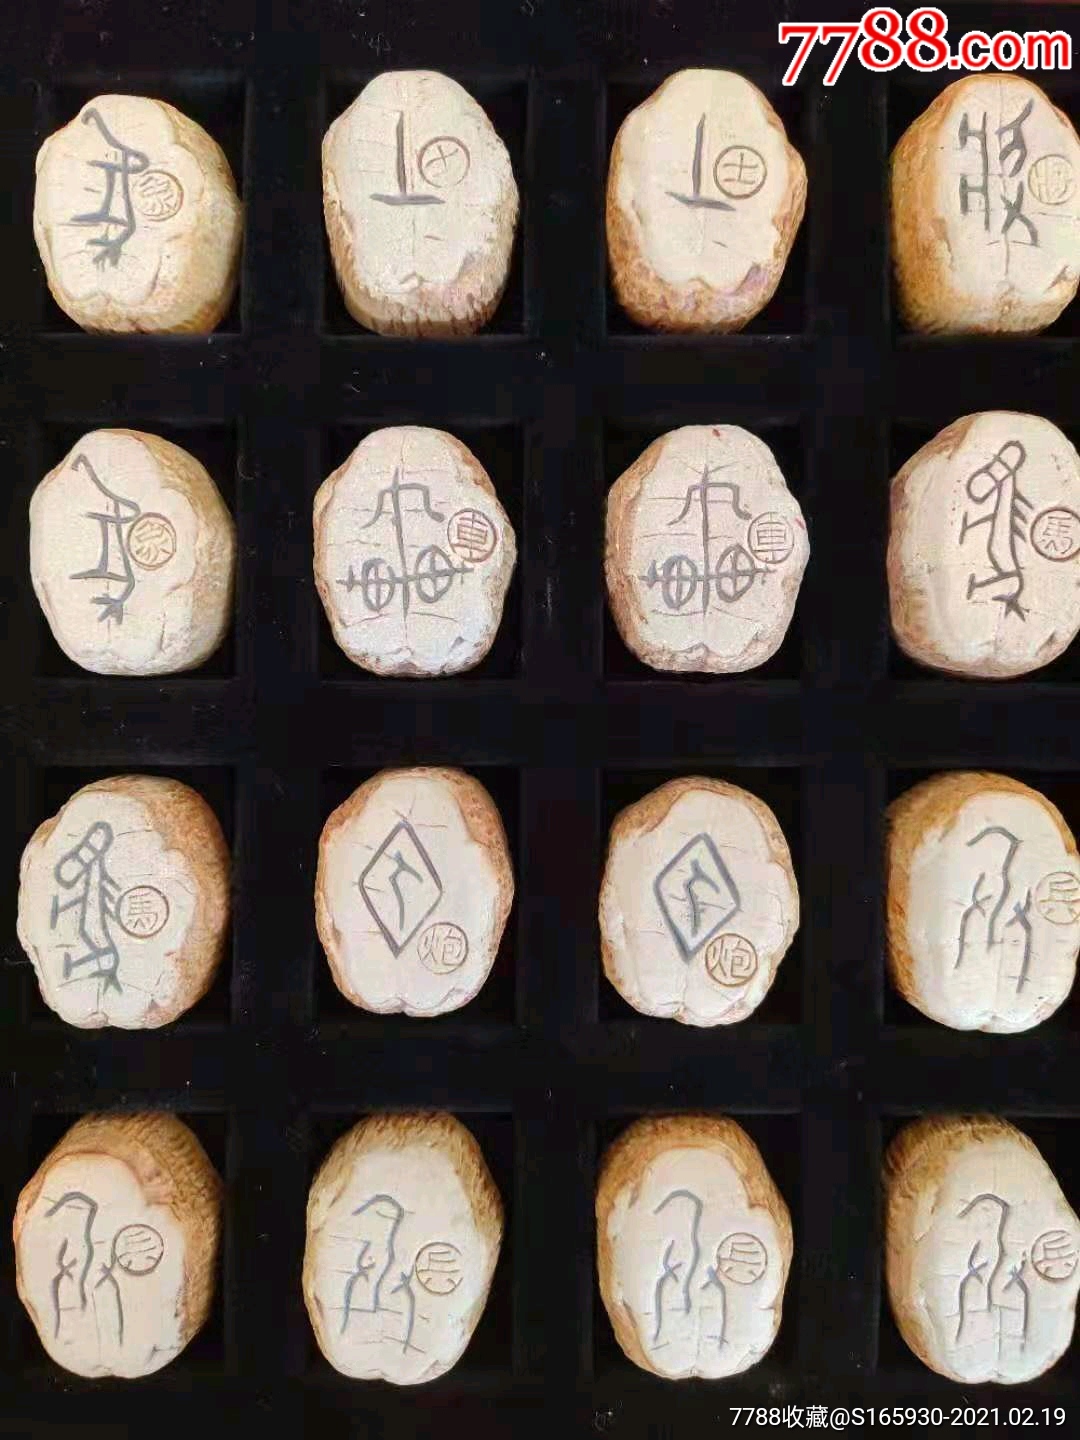 7788.com
象 士 士
象 車 車 馬
馬 炮 炮 兵
兵 兵 兵 兵
7788收藏@S165930-2021.02.19